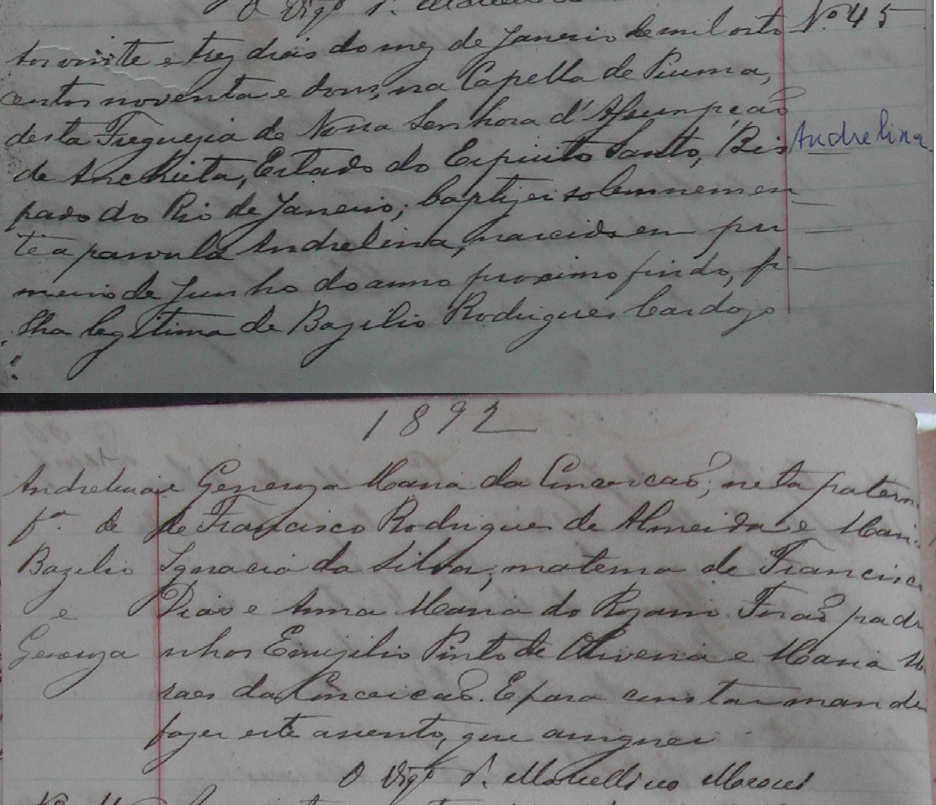 O Vigº P.
Aos vinte e trez dias do mez de Janeiro de mil oito Nº 45
centos noventa e dous, na Capella de Piuma,
desta Freguezia de Nossa Senhora d'Assumpcaõ
Andrelina
de Anchieta, Estado do Espirito Santo, Bis
pado do Rio de Janeiro, baptizei solemnemen
te a parvula Andrelina, nascida em pri
meiro de Junho do anno proximo findo, fi
lha legitima de Bazilio Rodrigues Cardozo
1892
Andrelina e Generoza Maria da Conceicaõ; neta patern
fª de de Francisco Rodrigues de Almeida e Mari
Bazilio Ignacia da Silva; materna de Francisco
e Dias e Anna Maria do Rozario. Foraõ padri
Generoza nhos Emigdio Pinto de Oliveira e Maria
raes da Conceicaõ. E para constar mandei
fazer este assento, que assignei
O Vigº P. Marcellino Moroni